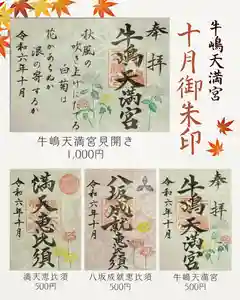 牛嶋天満宮
十月御朱印
奉拝
牛嶋天満宮
秋風の
吹き上げにたてる
白菊は
花かあらぬか
浪の寄するか
令和六年十月
牛嶋天満宮見開き
1,000円
満天恵比須
令和六年十月
八坂成就恵比須
令和六年十月
奉拝
牛嶋天満宮
令和六年十月
満天恵比須
500円
八坂成就恵比須
500円
牛嶋天満宮
500円